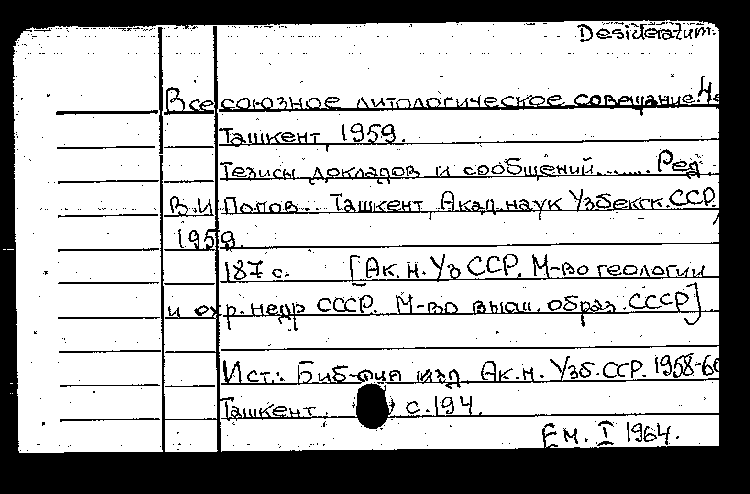 Desideratum.
Всесоюзное литологическое совещание. 4е
Ташкент, 1959.
Тезисы докладов и сообщений....... Ред.
В.И Попов.. Ташкент, Акад. наук Узбекск. ССР,
1959.
187 с. [Ак. н. Уз ССР. М-во геологии
и охр. недр СССР. М-во высш. образ. СССР]
Ист.: Биб-фия изд. Ак. н. Узб. ССР. 1958-60
Ташкент, с. 194.
Ем. I 1964.